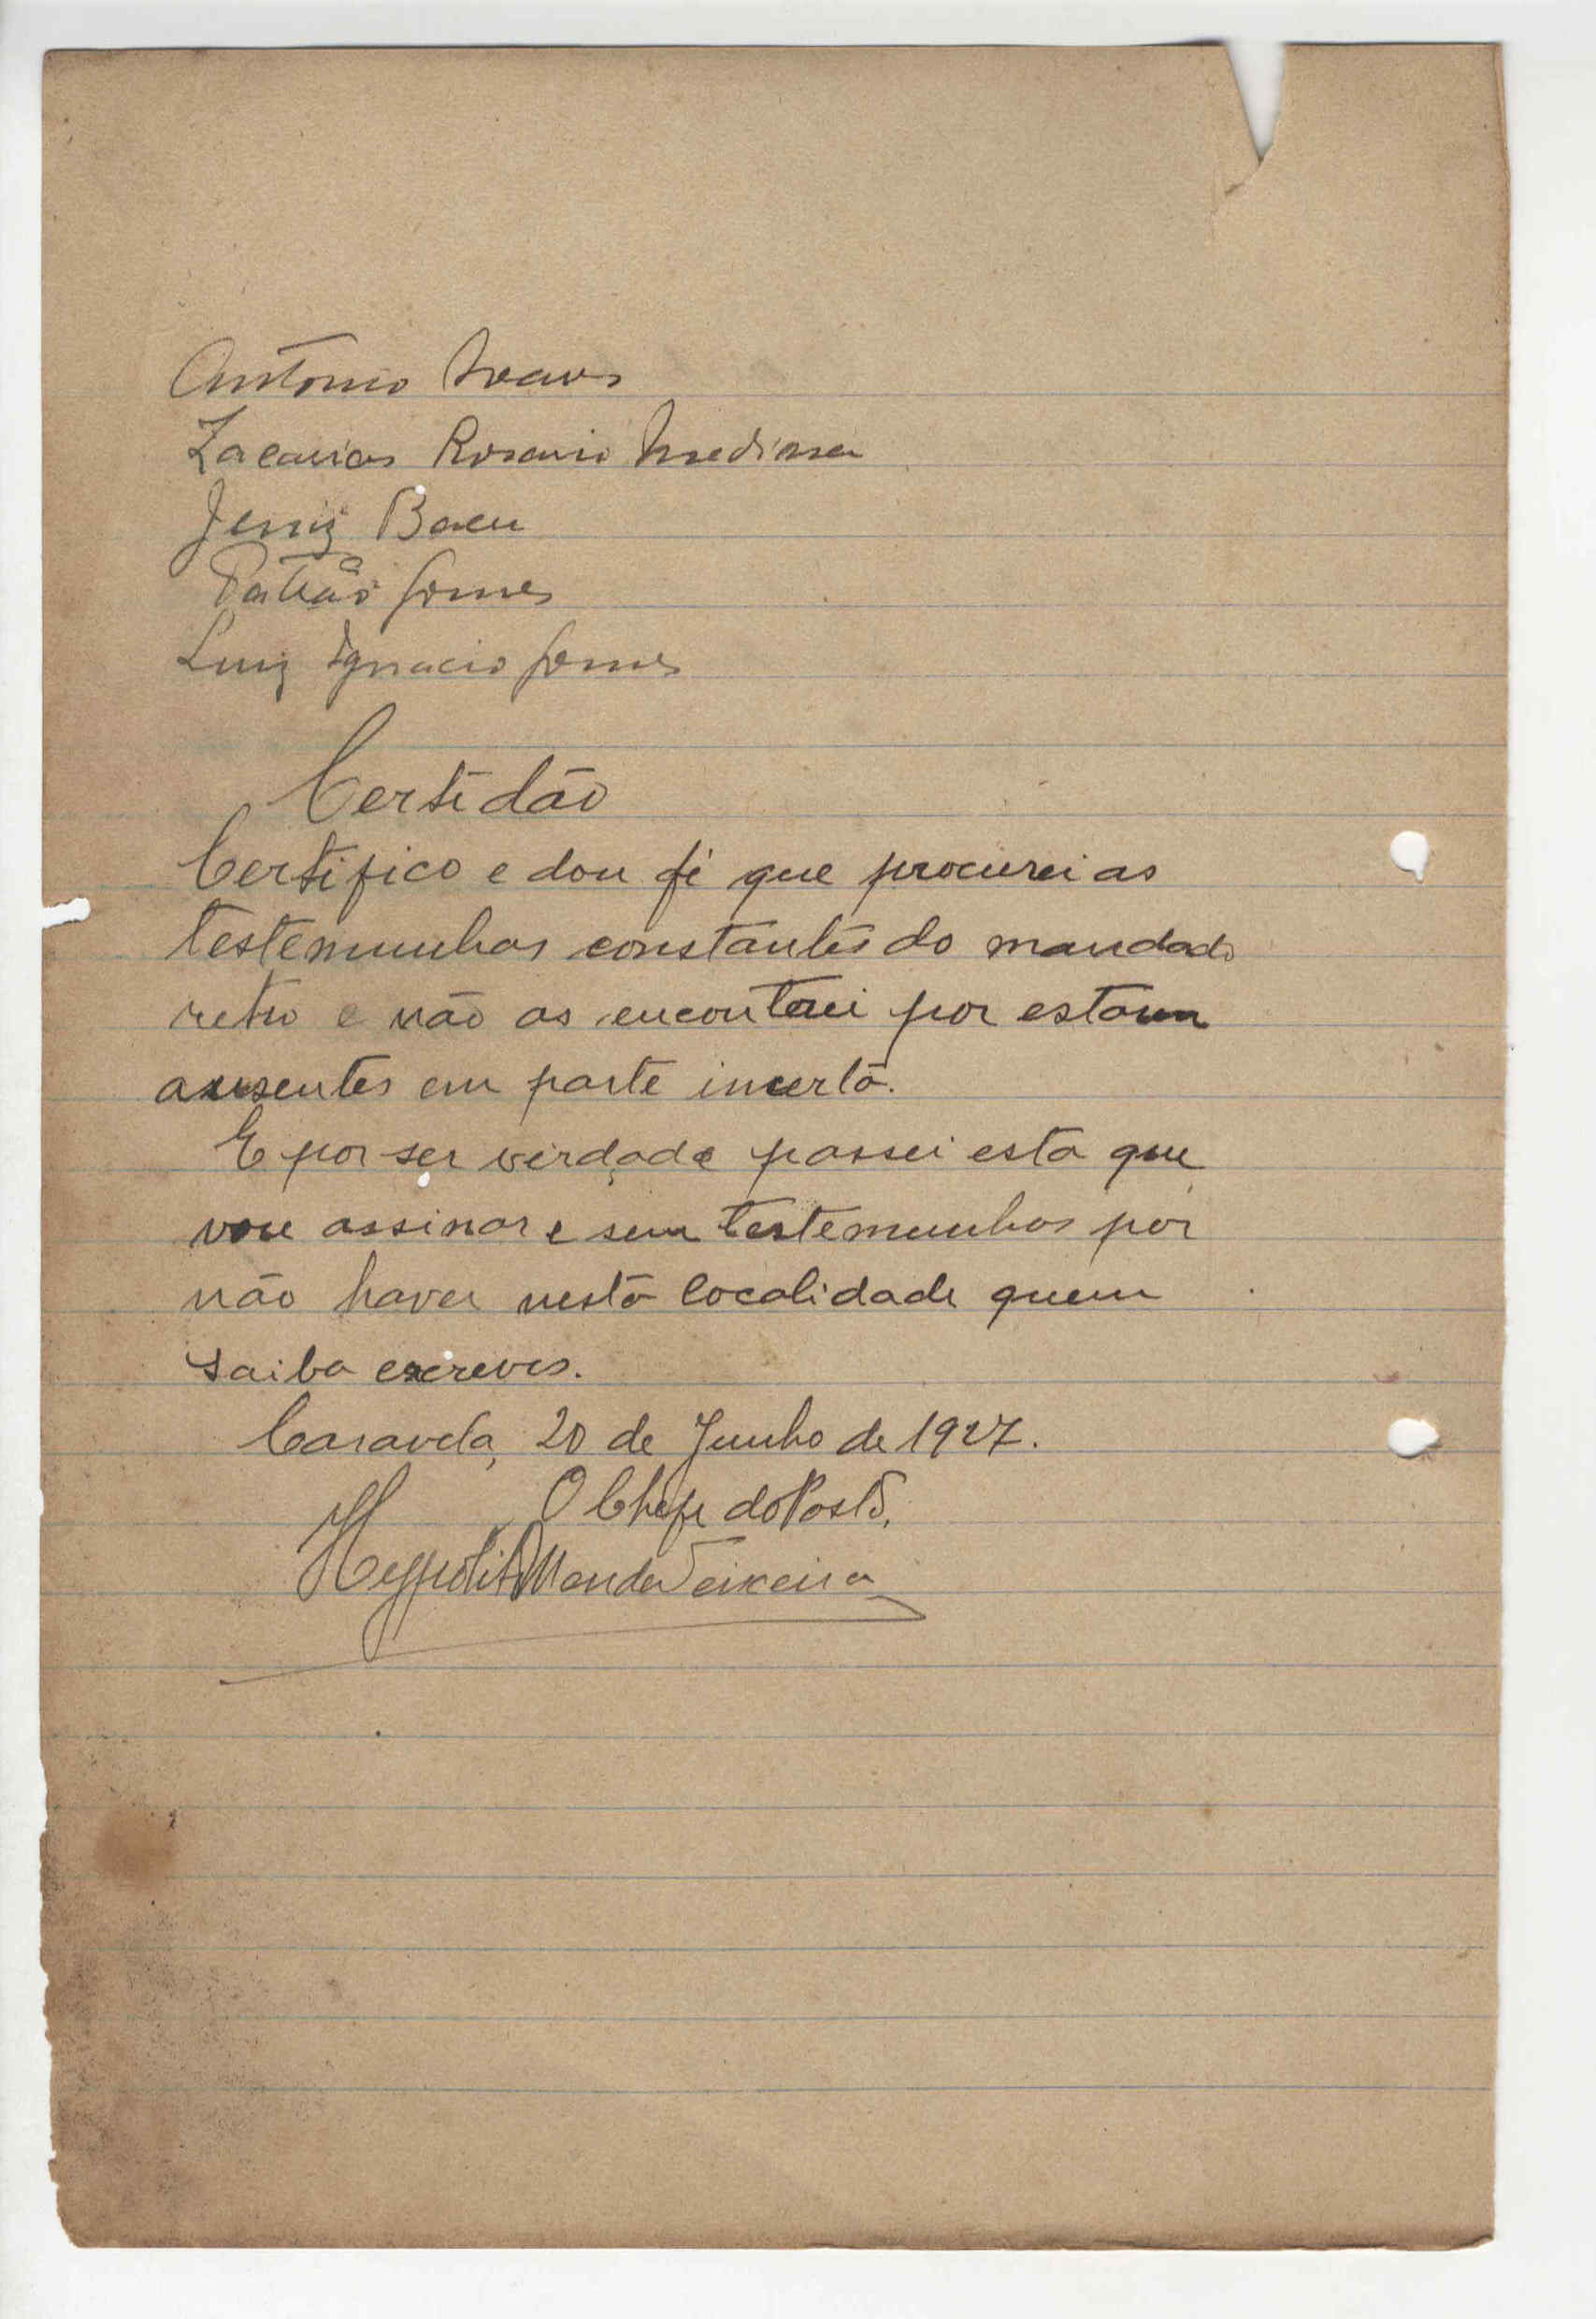 Antonio
Zacarias Rosario Medina
Jeniz Bacu
Patrão Gomes
Luiz Ignacio Gomes
Certidão
Certifico e dou fé que procurei as
testemunhas constantes do mandado
retro e não as encontrei por estarem
ausentes em parte incerta.
E por ser verdade passei esta que
vou assinar e sem testemunhas por
não haver nesta localidade quem
saiba escrever.
Caravela, 20 de Junho de 1927.
O Chefe do Posto,
Hyppolito Teixeira